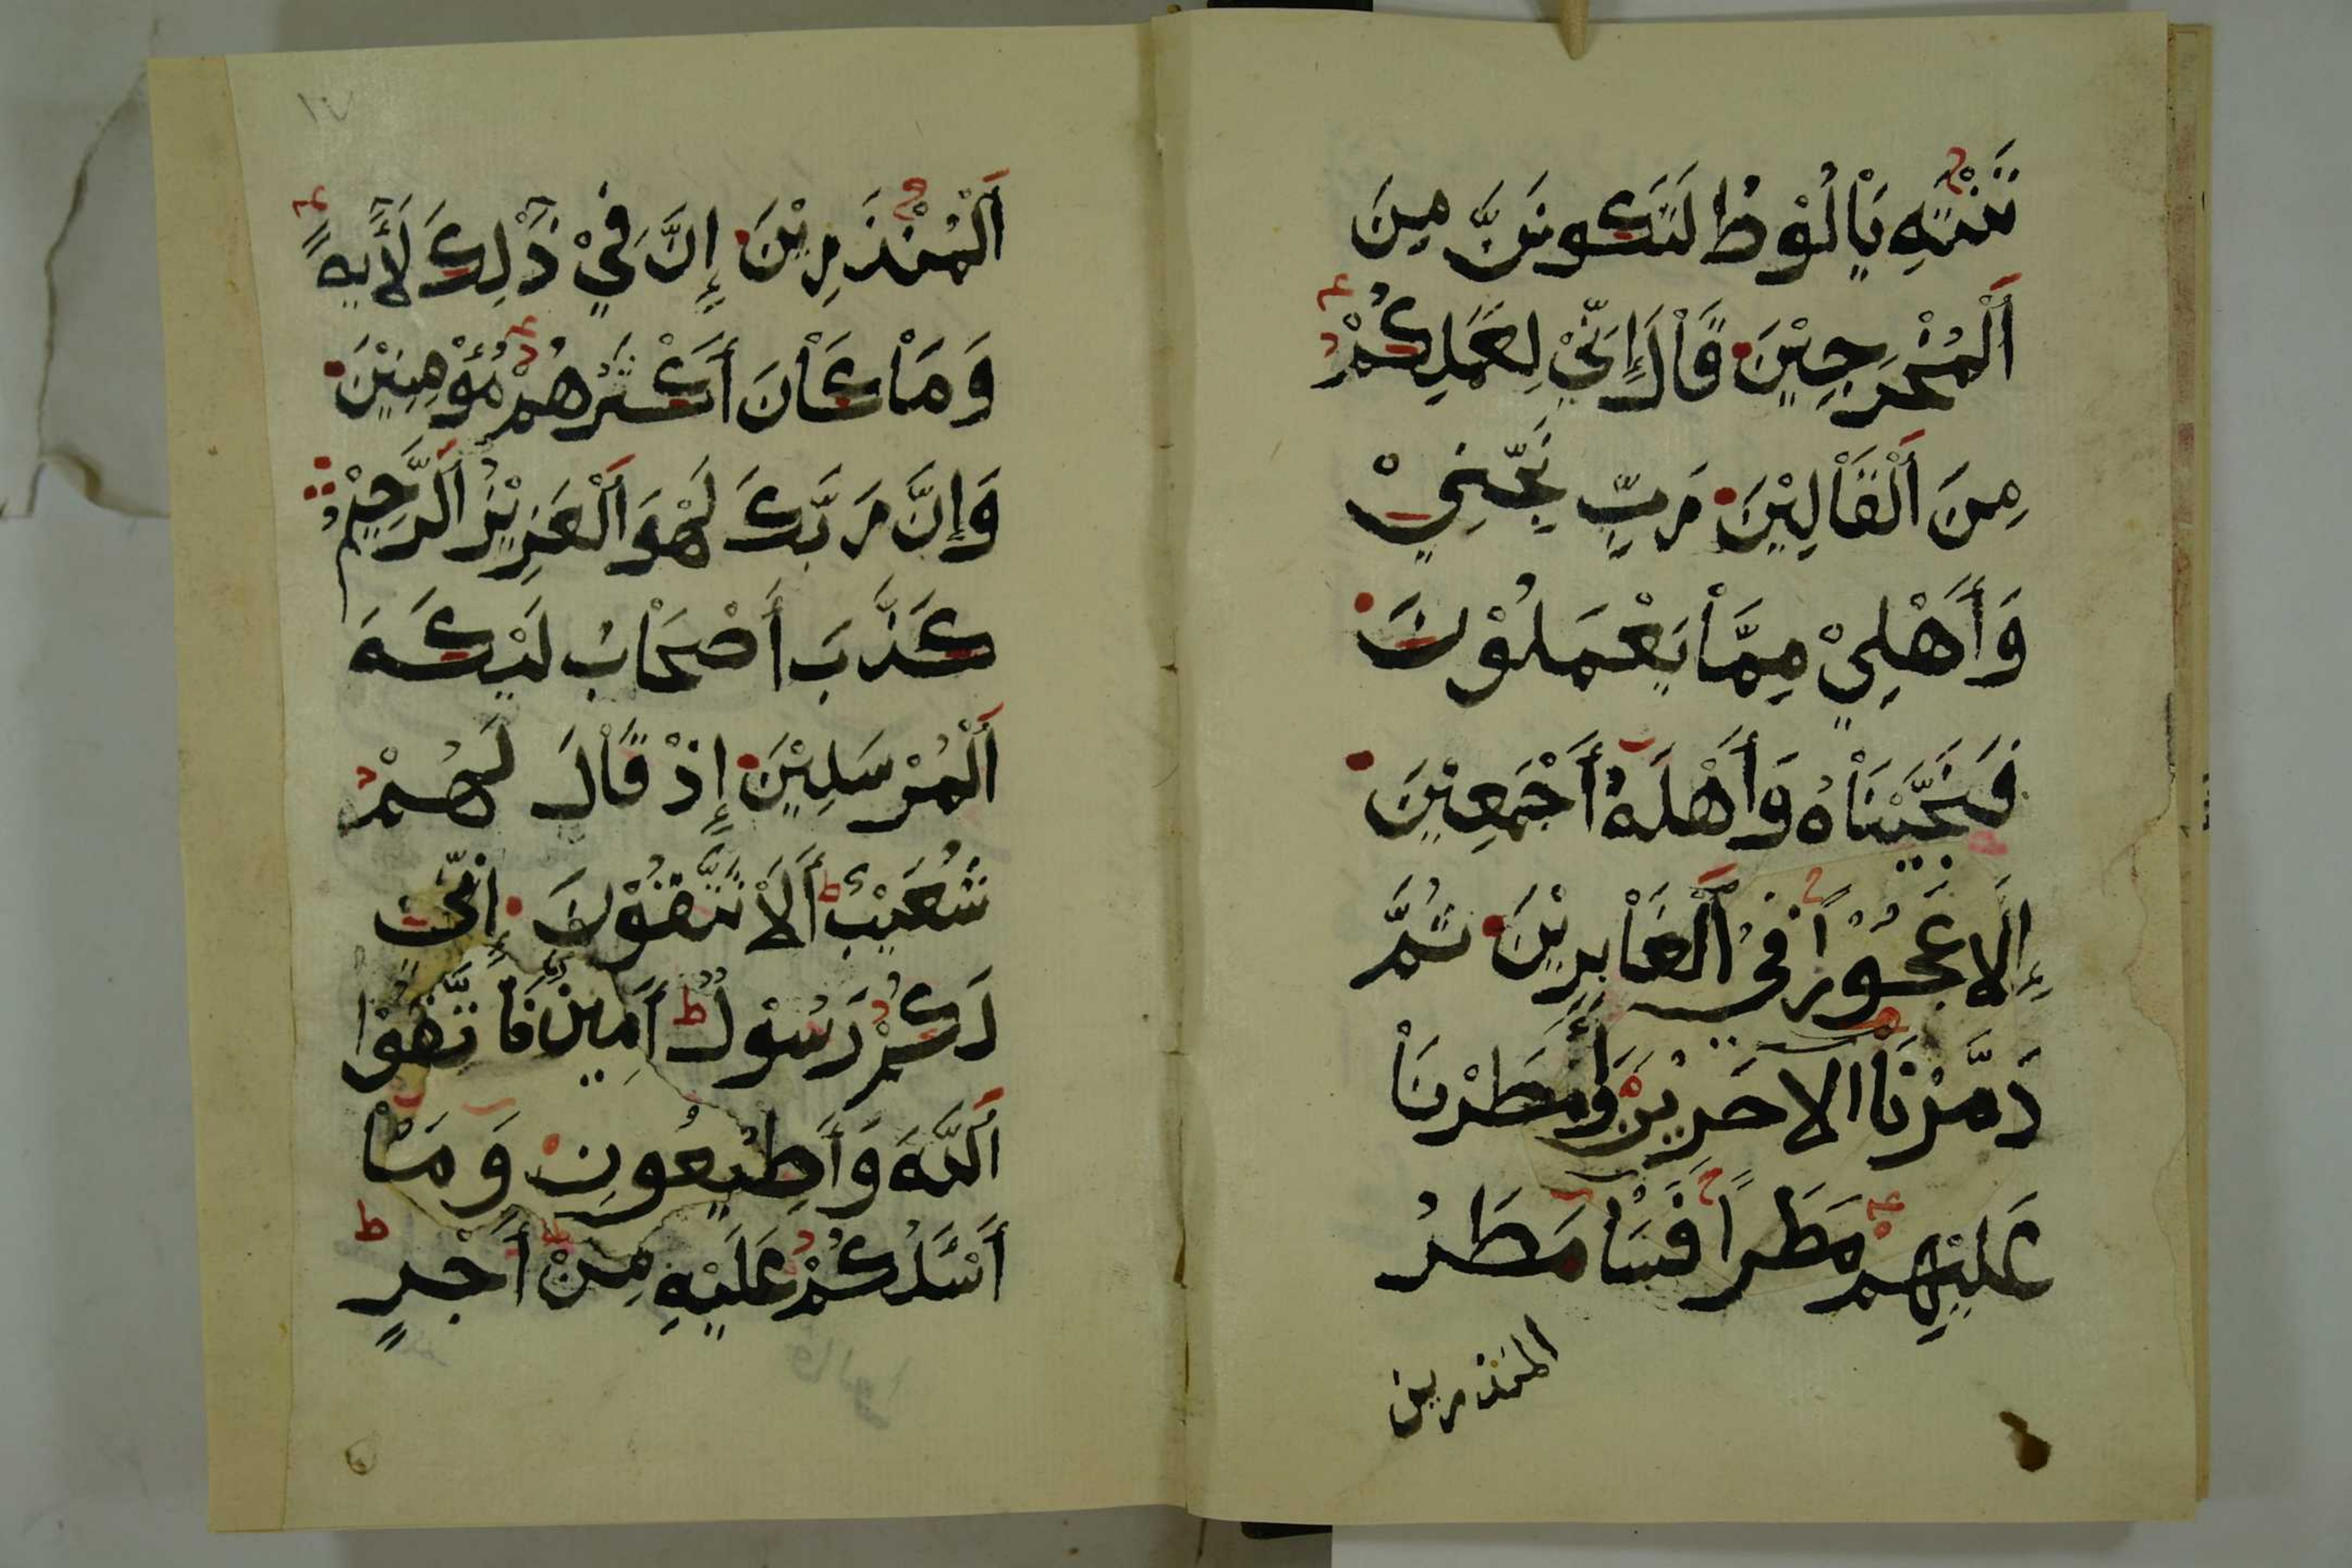 تَنْتَهِ يَاْ لُوْطُ لَتَكُونَنَّ مِنَ
اَلْمُخْرَجِيْنَ قَاْلَ إِنِّيْ لِعَمَلِكُمْ
مِنَ اَلْقَاْلِيْنَ رَبِّ نَجِّنِيْ
وَأَهْلِيْ مِمَّاْ يَعْمَلُوْنَ
فَنَجَّيْنَاْهُ وَأَهْلَهُ أَجْمَعِيْنَ
إِلَّا عَجُوْزًا فِيْ اَلْغَاْبِرِيْنَ ثُمَّ
دَمَّرْنَا الاخَرِيْنَ وَأَمْطَرْنَاْ
عَلَيْهِم مَطَرًا فَسَاْ مَطَرُ
المنذرين
١٧
اَلْمُنْذَرِيْنَ إِنَّ فِيْ ذَٰلِكَ لَأَيَةً
وَمَاْ كَاْنَ أَكْثَرُهُمْ مُؤْمِنِيْنَ
وَإِنَّ رَبَّكَ لَهْوَ اَلْعَزِيْزُ اَلرَّحِيْمُ
كَذَّبَ أَصْحَاْبُ لَيْكَةَ
اَلْمُرْسَلِيْنَ إِذْ قَاْلَ لَهُمْ
شُعَيْبٌ أَلَاْ تَتَّقُوْنَ إِنِّيْ
لَكُمْ رَسُوْلٌ أَمِينٌ فَاْتَّقُوْا
اَللَّهَ وَأَطِيْعُونِ وَمَاْ
أَسْـَٔلُكُمْ عَلَيْهِ مِنْ أَجْرٍ